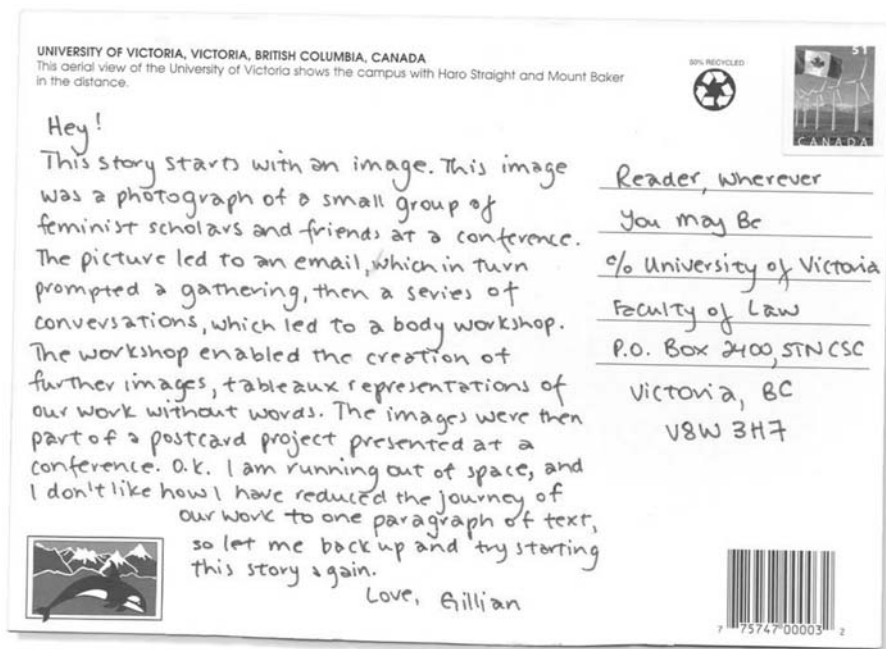 UNIVERSITY OF VICTORIA, VICTORIA, BRITISH COLUMBIA, CANADA
This aerial view of the University of Victoria shows the campus with Haro Straight and Mount Baker
in the distance.
50% RECYCLED
51
CANADA
Hey!
This story starts with an image. This image
was a photograph of a small group of
feminist scholars and friends at a conference.
The picture led to an email, which in turn
prompted a gathering, then a series of
conversations, which led to a body workshop.
The workshop enabled the creation of
further images, tableaux representations of
our work without words. The images were then
part of a postcard project presented at a
conference. O.K. I am running out of space, and
I don't like how I have reduced the journey of
our work to one paragraph of text,
so let me back up and try starting
this story again.
Love, Gillian
Reader, wherever
You may Be
c/o University of Victoria
Faculty of Law
P.O. Box 2400, STN CSC
Victoria, BC
V8W 3H7
7 75747 00003 2